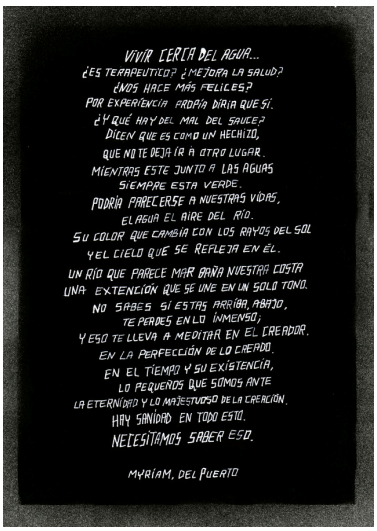 VIVIR CERCA DEL AGUA...
¿ES TERAPEUTICO? ¿MEJORA LA SALUD?
¿NOS HACE MÁS FELICES?
POR EXPERIENCIA PROPIA DIRIA QUE SI.
¿Y QUÉ HAY DEL MAL DEL SAUCE?
DICEN QUE ES COMO UN HECHIZO,
QUE NO TE DEJA IR A OTRO LUGAR.
MIENTRAS ESTE JUNTO A LAS AGUAS
SIEMPRE ESTA VERDE.
PODRÍA PARECERSE A NUESTRAS VIDAS,
EL AGUA EL AIRE DEL RÍO.
SU COLOR QUE CAMBIA CON LOS RAYOS DEL SOL
Y EL CIELO QUE SE REFLEJA EN ÉL.
UN RÍO QUE PARECE MAR BAÑA NUESTRA COSTA
UNA EXTENCIÓN QUE SE UNE EN UN SOLO TONO.
NO SABES SI ESTAS ARRIBA, ABAJO,
TE PERDES EN LO INMENSO;
Y ESO TE LLEVA A MEDITAR EN EL CREADOR.
EN LA PERFECCIÓN DE LO CREADO.
EN EL TIEMPO Y SU EXISTENCIA,
LO PEQUEÑOS QUE SOMOS ANTE
LA ETERNIDAD Y LO MAJESTUOSO DE LA CREACIÓN.
HAY SANIDAD EN TODO ESTO.
NECESITAMOS SABER ESO.
MYRIAM, DEL PUERTO